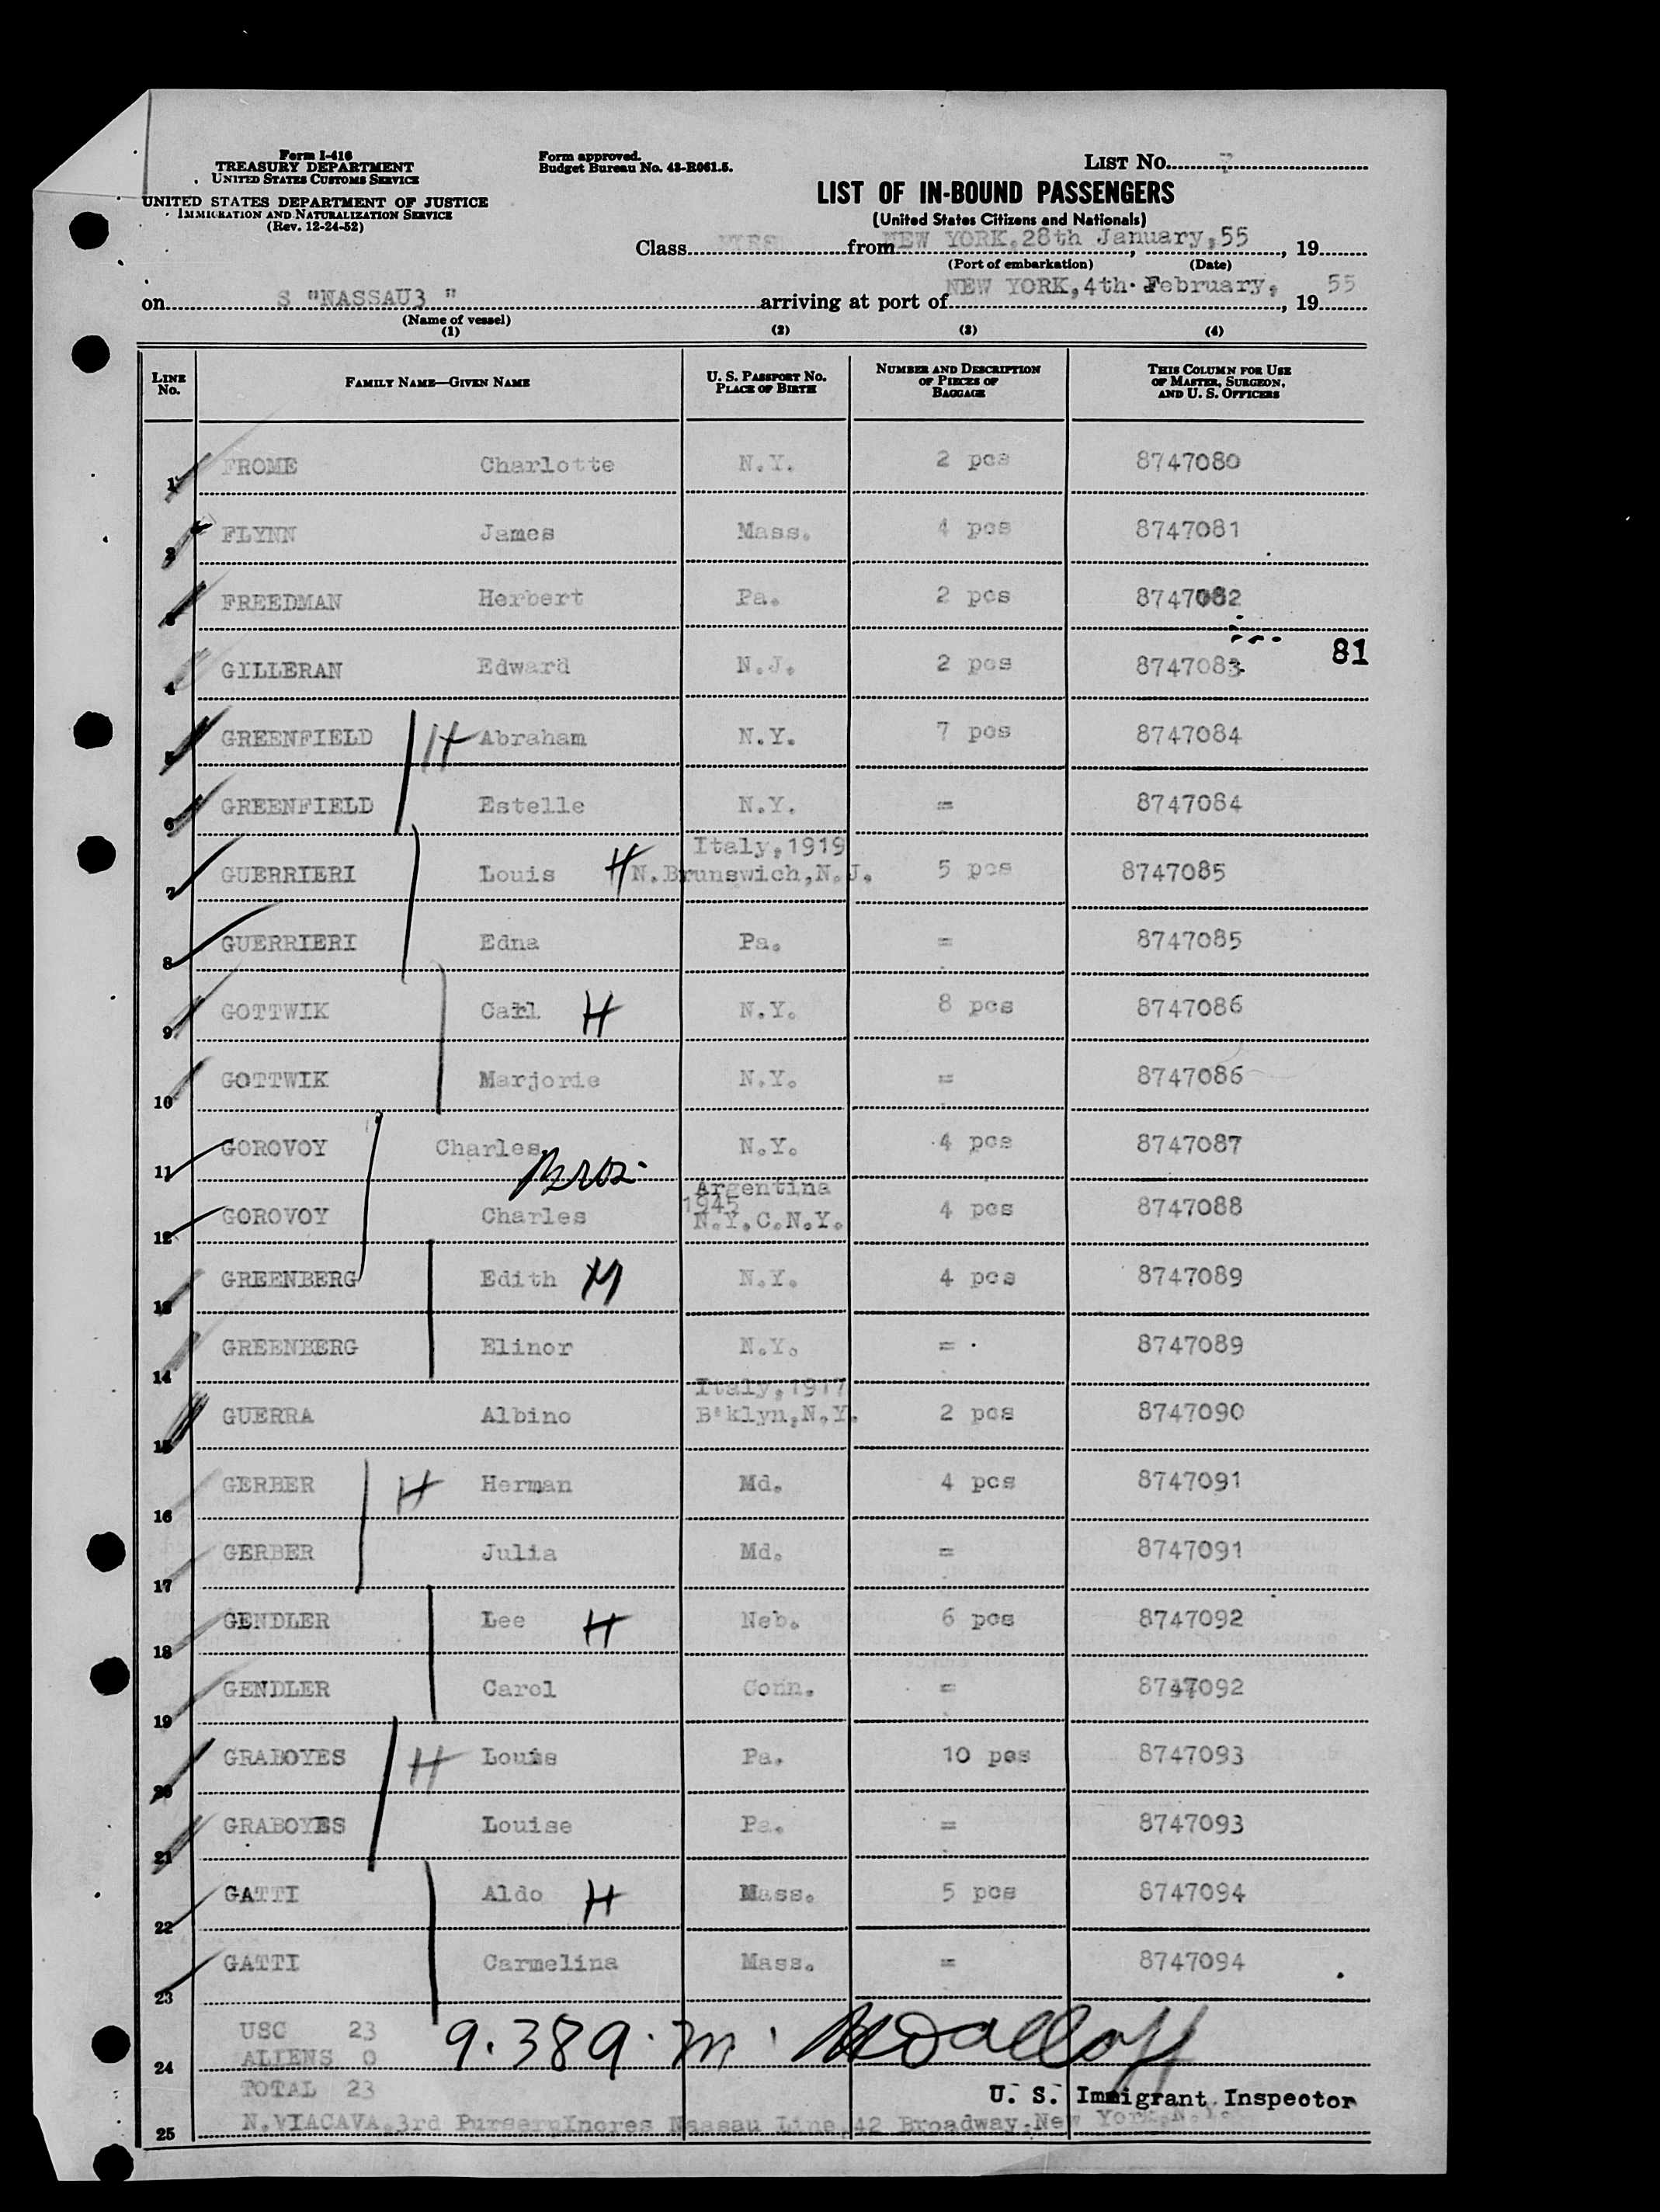 Form I-416
TREASURY DEPARTMENT
UNITED STATES CUSTOMS SERVICE
UNITED STATES DEPARTMENT OF JUSTICE
IMMIGRATION AND NATURALIZATION SERVICE
(Rev. 12-24-52)
Form approved.
Budget Bureau No. 43-R061.5.
LIST No.
LIST OF IN-BOUND PASSENGERS
(United States Citizens and Nationals)
Class from NEW YORK, 28th January, 55, 19
(Port of embarkation) (Date)
on S "NASSAU3 " arriving at port of NEW YORK, 4th. February, 19 55
(Name of vessel)
(1) (2) (3) (4)
LINE No. FAMILY NAME—GIVEN NAME U. S. PASSPORT NO. PLACE OF BIRTH NUMBER AND DESCRIPTION OF PIECES OF BAGGAGE THIS COLUMN FOR USE OF MASTER, SURGEON, AND U. S. OFFICERS
1 FROME Charlotte N.Y. 2 pcs 8747080
2 FLYNN James Mass. 4 pcs 8747081
3 FREEDMAN Herbert Pa. 2 pcs 8747082
81
4 GILLERAN Edward N.J. 2 pcs 8747083
5 GREENFIELD H Abraham N.Y. 7 pcs 8747084
6 GREENFIELD Estelle N.Y. = 8747084
Italy,1919
7 GUERRIERI Louis H N.Brunswich,N.J. 5 pcs 8747085
8 GUERRIERI Edna Pa. = 8747085
9 GOTTWIK Carl H N.Y. 8 pcs 8747086
10 GOTTWIK Marjorie N.Y. = 8747086
11 GOROVOY Charles N.Y. 4 pcs 8747087
Bros.
Argentina
1945
12 GOROVOY Charles N.Y.C.N.Y. 4 pcs 8747088
13 GREENBERG Edith N.Y. 4 pcs 8747089
14 GREENBERG Elinor N.Y. = 8747089
Italy,1917
15 GUERRA Albino B'klyn,N.Y. 2 pcs 8747090
16 GERBER H Herman Md. 4 pcs 8747091
17 GERBER Julia Md. = 8747091
18 GENDLER Lee H Neb. 6 pcs 8747092
19 GENDLER Carol Conn. = 8747092
20 GRABOYES H Louis Pa. 10 pcs 8747093
21 GRABOYES Louise Pa. = 8747093
22 GATTI Aldo H Mass. 5 pcs 8747094
23 GATTI Carmelina Mass. = 8747094
USC 23
24 ALIENS 0
TOTAL 23
U. S. Immigrant Inspector
25 N.VIACAVA,3rd Purser Nassau Line,42 Broadway,New York,N.Y.